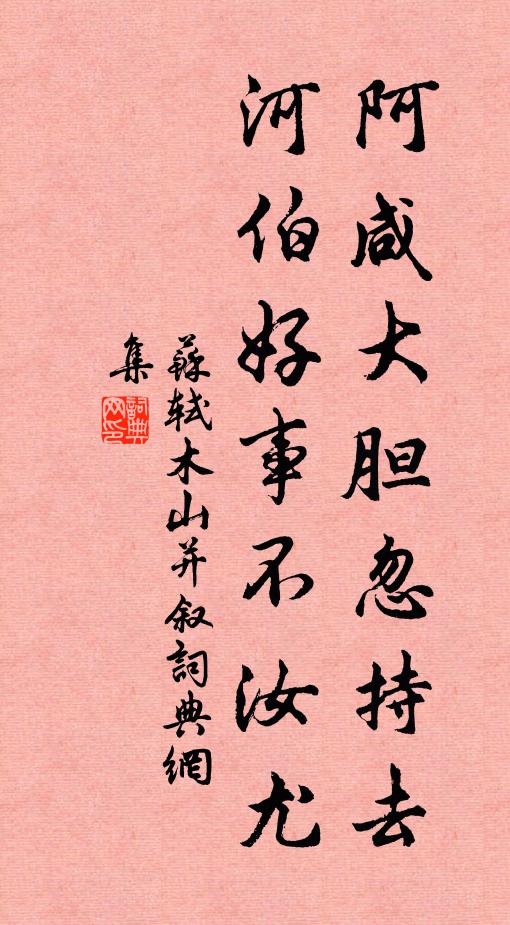 阿咸大胆忽持去
河伯好事不汝尤
蘇轼木山并叙詞典網
集
詞典网印